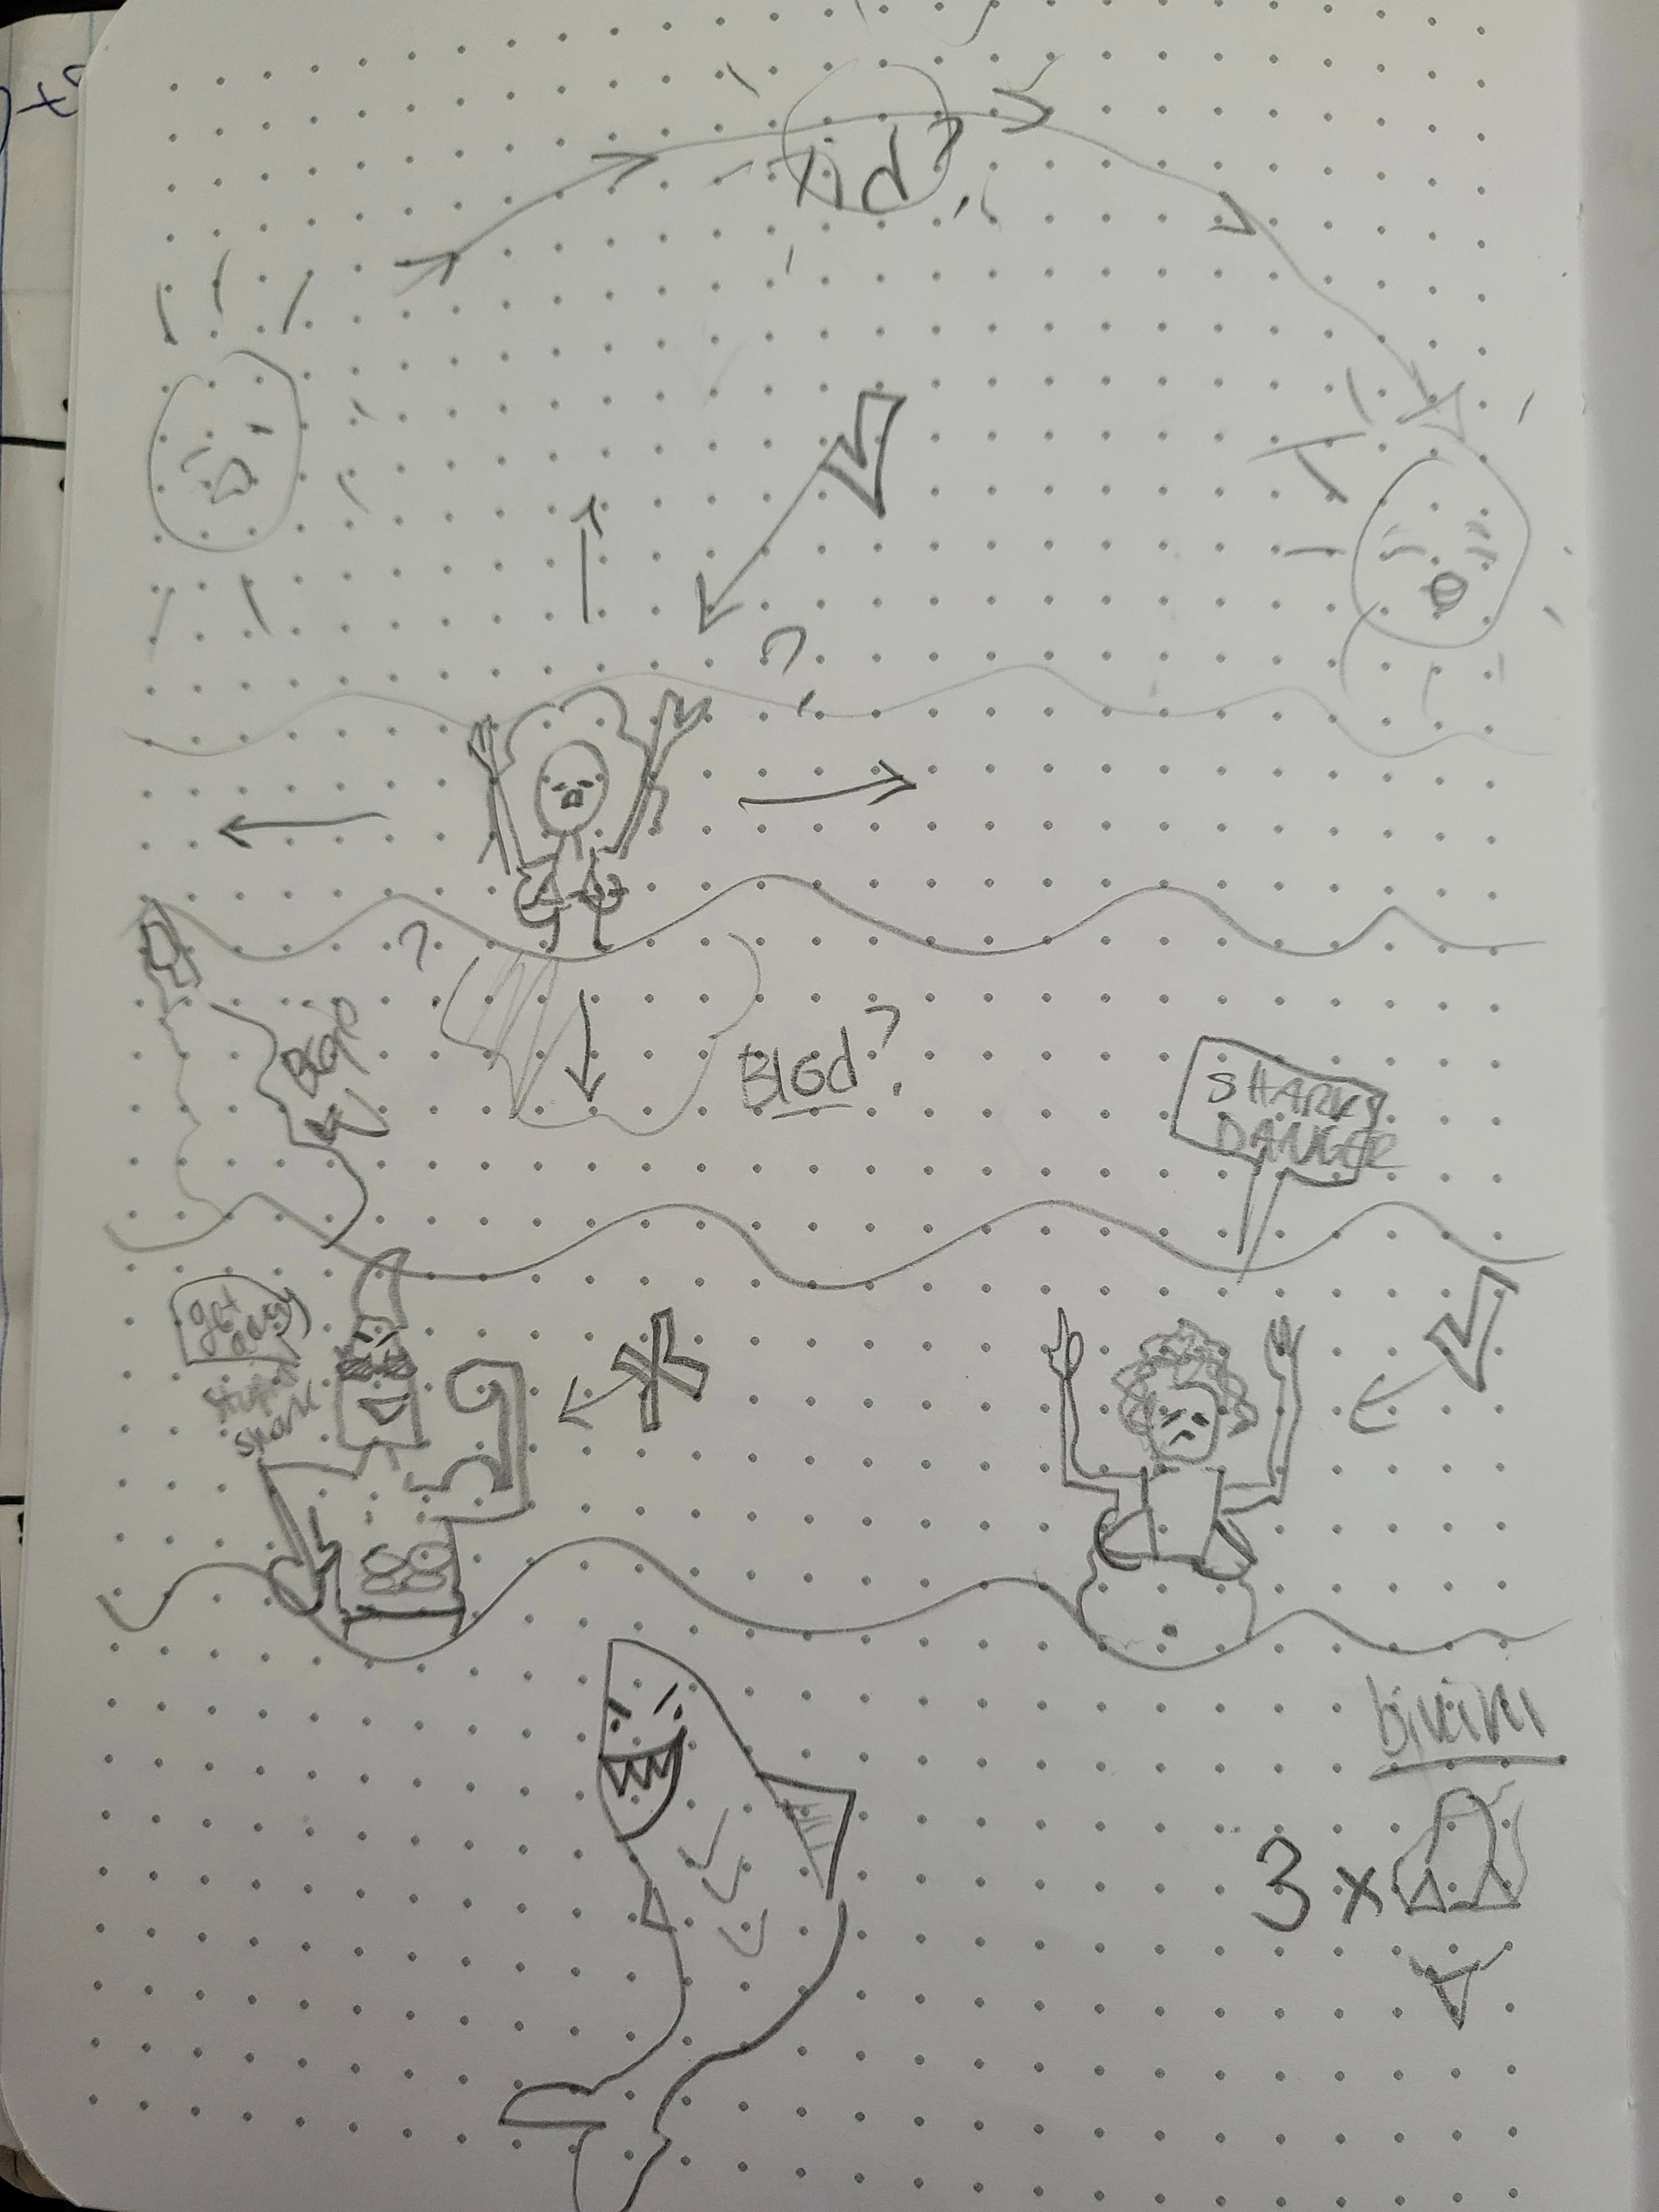 kid?
?
?
Blod?
SHARKS
DANGER
get
away
stupid
shark
bikini
3 x